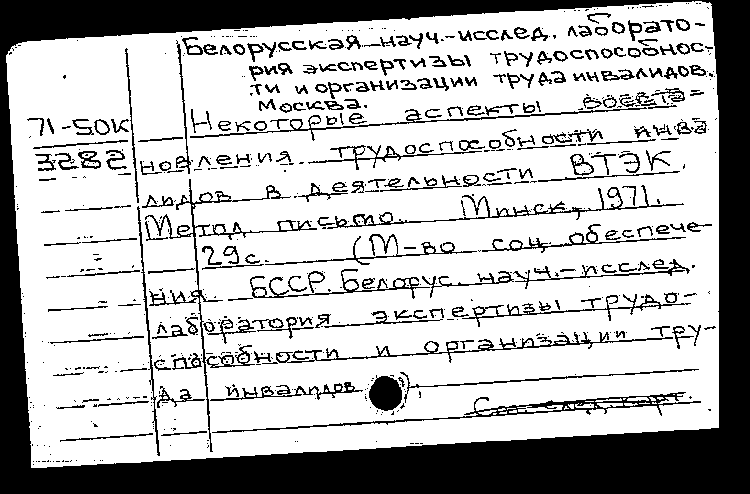 Белорусская науч.-исслед. лаборато-
рия экспертизы трудоспособнос-
ти и организации труда инвалидов.
Москва.
71-50К Некоторые аспекты восста=
3282 новления трудоспособности инва
лидов в деятельности ВТЭК.
Метод. письмо. Минск, 1971.
29с. (М-во соц. обеспече-
ния БССР. Белорус. науч.-исслед.
лаборатория экспертизы трудо-
способности и организации тру-
да инвалидов).
См. след. карт.